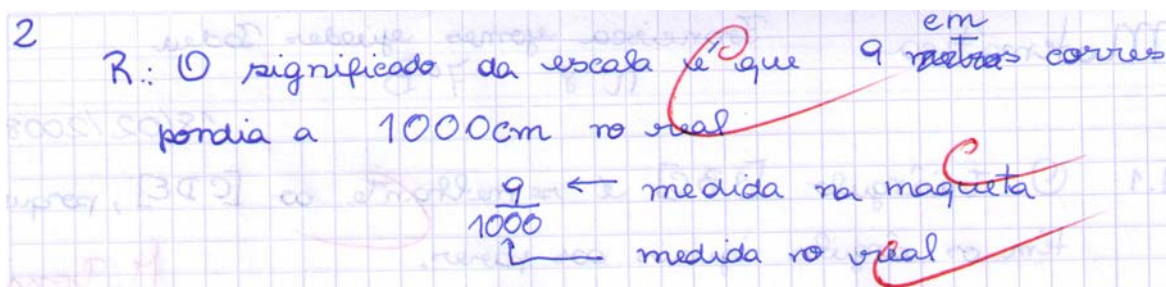 2
em
R.: O significado da escala é que 9 metros corres
pondia a 1000cm no real
9 ← medida na maqueta
1000
medida no real